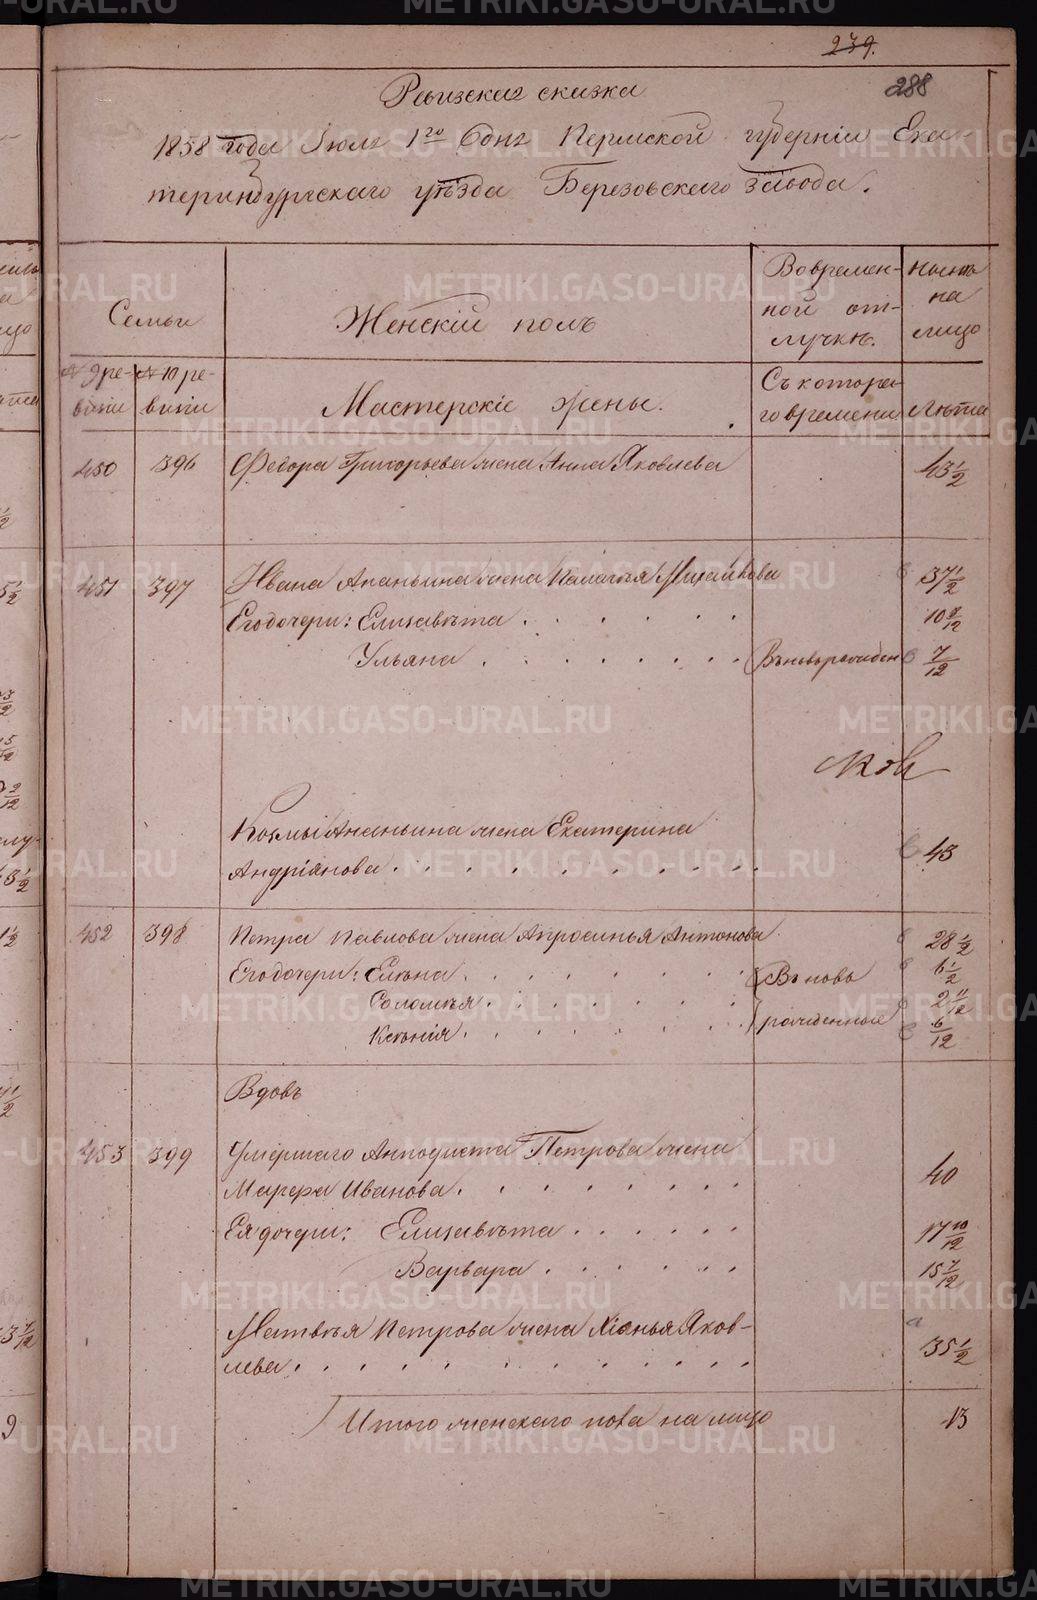 239.
288
Ревизская сказка
1858 года Iюля 1го дня Пермской губернiи Ека-
теринбургскаго уѣзда Березовскаго завода.
Семьи
Женскiй полъ
Во времен-
ной от-
лучкѣ.
Нынѣ
на
лицо
№ 9 ре-
визiи
№ 10 ре-
визiи
Мастерскiе жены.
Съ котора-
го времени
Лѣта
450 396 Федора Григорьева жена Анна Яковлева 43 1/2
451 397 Ивана Ананьина жена Палагѣя Михайлова 37 1/2
Его дочери: Елизавѣта . . . . . 10
Ульяна . . . . . . . Вновьрожден 7/12
Козмы Ананьина жена Екатерина
Андрiянова . . . . . . . . . . 43
452 398 Петра Павлова жена Апросинья Антонова 28 1/2
Его дочери: Елѣна . . . . . . . Вновь 6 1/2
Соломѣя . . . . . . 2 11/12
Ксѣнiя . . . . . . . рожденные 6/12
Вдовъ
453 399 Умершаго Анподиста Петрова жена
Марфа Иванова . . . . . . . . 40
Ея дочери: Елизавѣта . . . . . 17 10/12
Варвара . . . . . . 15 7/12
Матвѣя Петрова жена Яков-
лева . . . . . . . . . . . . 35 1/2
Итого женскаго пола на лицо 13
METRIKI.GASO-URAL.RU